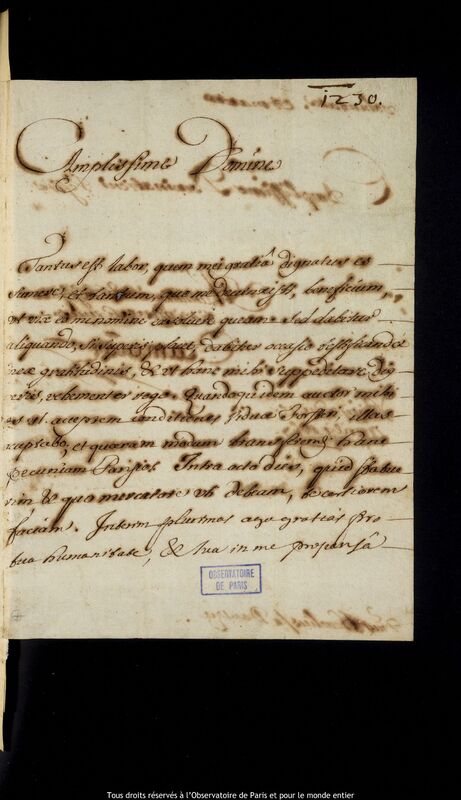 1230.
Amplissime Domine
Tantus est labor, quem mei gratiâ dignatus es
sumere, et tantum, quo me beneficium,
ut vix eo nomine queam. Sed dabitur
aliquando, si superis placet, dabitur occasio testificandæ
meæ gratitudinis, & ut hanc mihi suppeditare dig
neris, vehementer rogo. Quandoquidem auctor mihi
es ut acceptem conditiones viduæ illas
acceptabo, et quæram modum transferendi hanc
pecuniam Parisios. Intra octo dies, quid statue
rim & qua uti debeam, te certiorem
faciam. Interim plurimas ago gratias pro
tua humanitate, & tua in me propensâ
OBSERVATOIRE
DE PARIS
Tous droits réservés à l'Observatoire de Paris et pour le monde entier